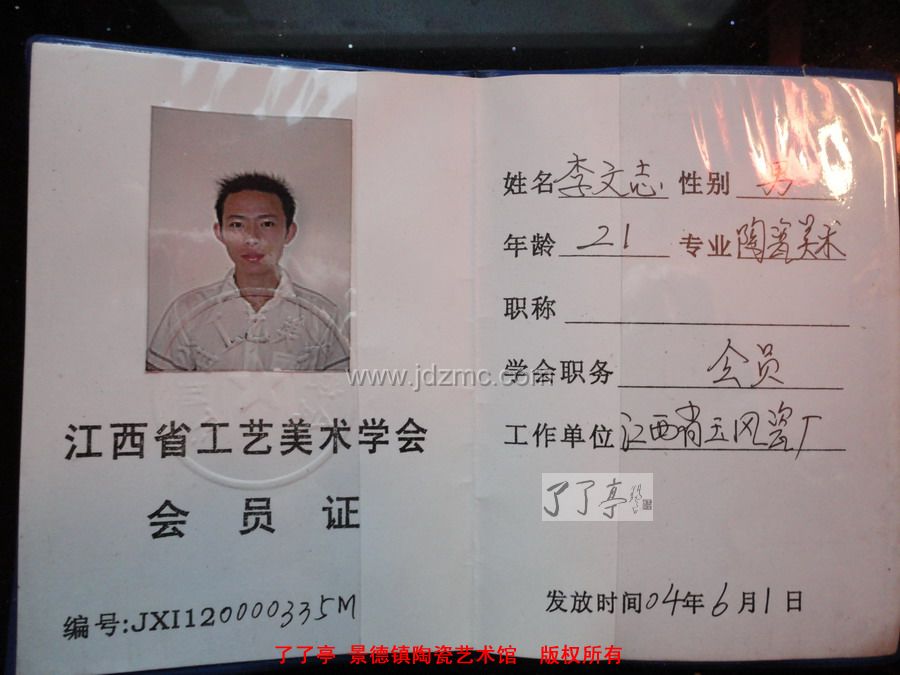 江西省工艺美术学会
会员证
编号:JXI120000335M
姓名 李文志 性别 男
年龄 21 专业 陶瓷美术
职称
学会职务 会员
工作单位 江西省玉风瓷厂
了了亭
发放时间04年6月1日
www.jdzmc.com
了了亭 景德镇陶瓷艺术馆 版权所有